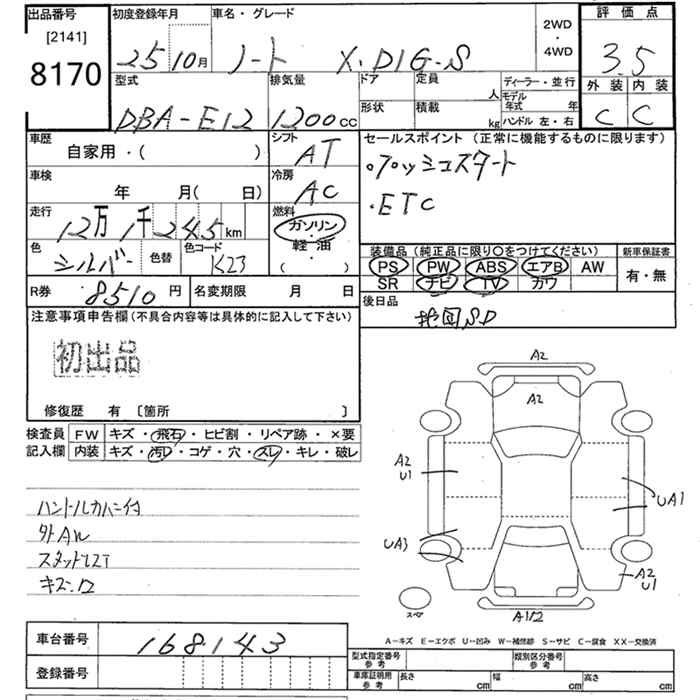 出品番号
[2141]
8170
初度登録年月
25 10月
車名・グレード
ノート X・DIG-S
2WD
・
4WD
評価点
3.5
外装 内装
C C
型式
DBA-E12
排気量
1200cc
ドア 定員 人
形状 積載 kg
ディーラー・並行
モデル年式 年
ハンドル 左・右
車歴
自家用・( )
シフト
AT
車検
年 月( 日)
冷房
AC
走行
12万1千245km
燃料
ガソリン
軽・油
・
( )
色
シルバー
色替
色コード
K23
セールスポイント (正常に機能するものに限ります)
・プッシュスタート
・ETC
装備品(純正品に限り〇をつけてください)
PS PW ABS エアB AW
SR ナビ TV カワ
新車保証書
有・無
R券 8510円
名変期限 月 日
後日品
地図SD
注意事項申告欄(不具合内容等は具体的に記入して下さい)
初出品
修復歴 有 〔箇所 〕
検査員記入欄
FW キズ・飛石・ヒビ割・リペア跡・×要
内装 キズ・汚レ・コゲ・穴・スレ・キレ・破レ
ハンドルカバー付
外AW
スタッドレスT
キズ・凹
A2
A2
A2
U1
UA1
UA3
A2
U1
スペア
A1/2
A－キズ E－エクボ U－凹み W－補修跡 S－サビ C－腐食 XX－交換済
車台番号
168143
登録番号
型式指定番号
参考
類別区分番号
参考
車庫証明用
参考
長さ cm 幅 cm 高さ cm